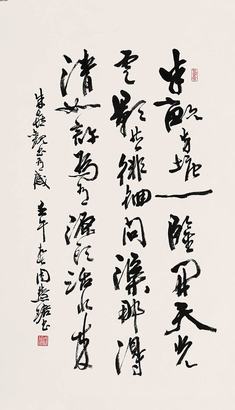 半畝方塘一鑒開天光
云影共徘徊問渠那得
清如許為有源頭活水來
朱熹觀書有感 壬午春周慧珺書